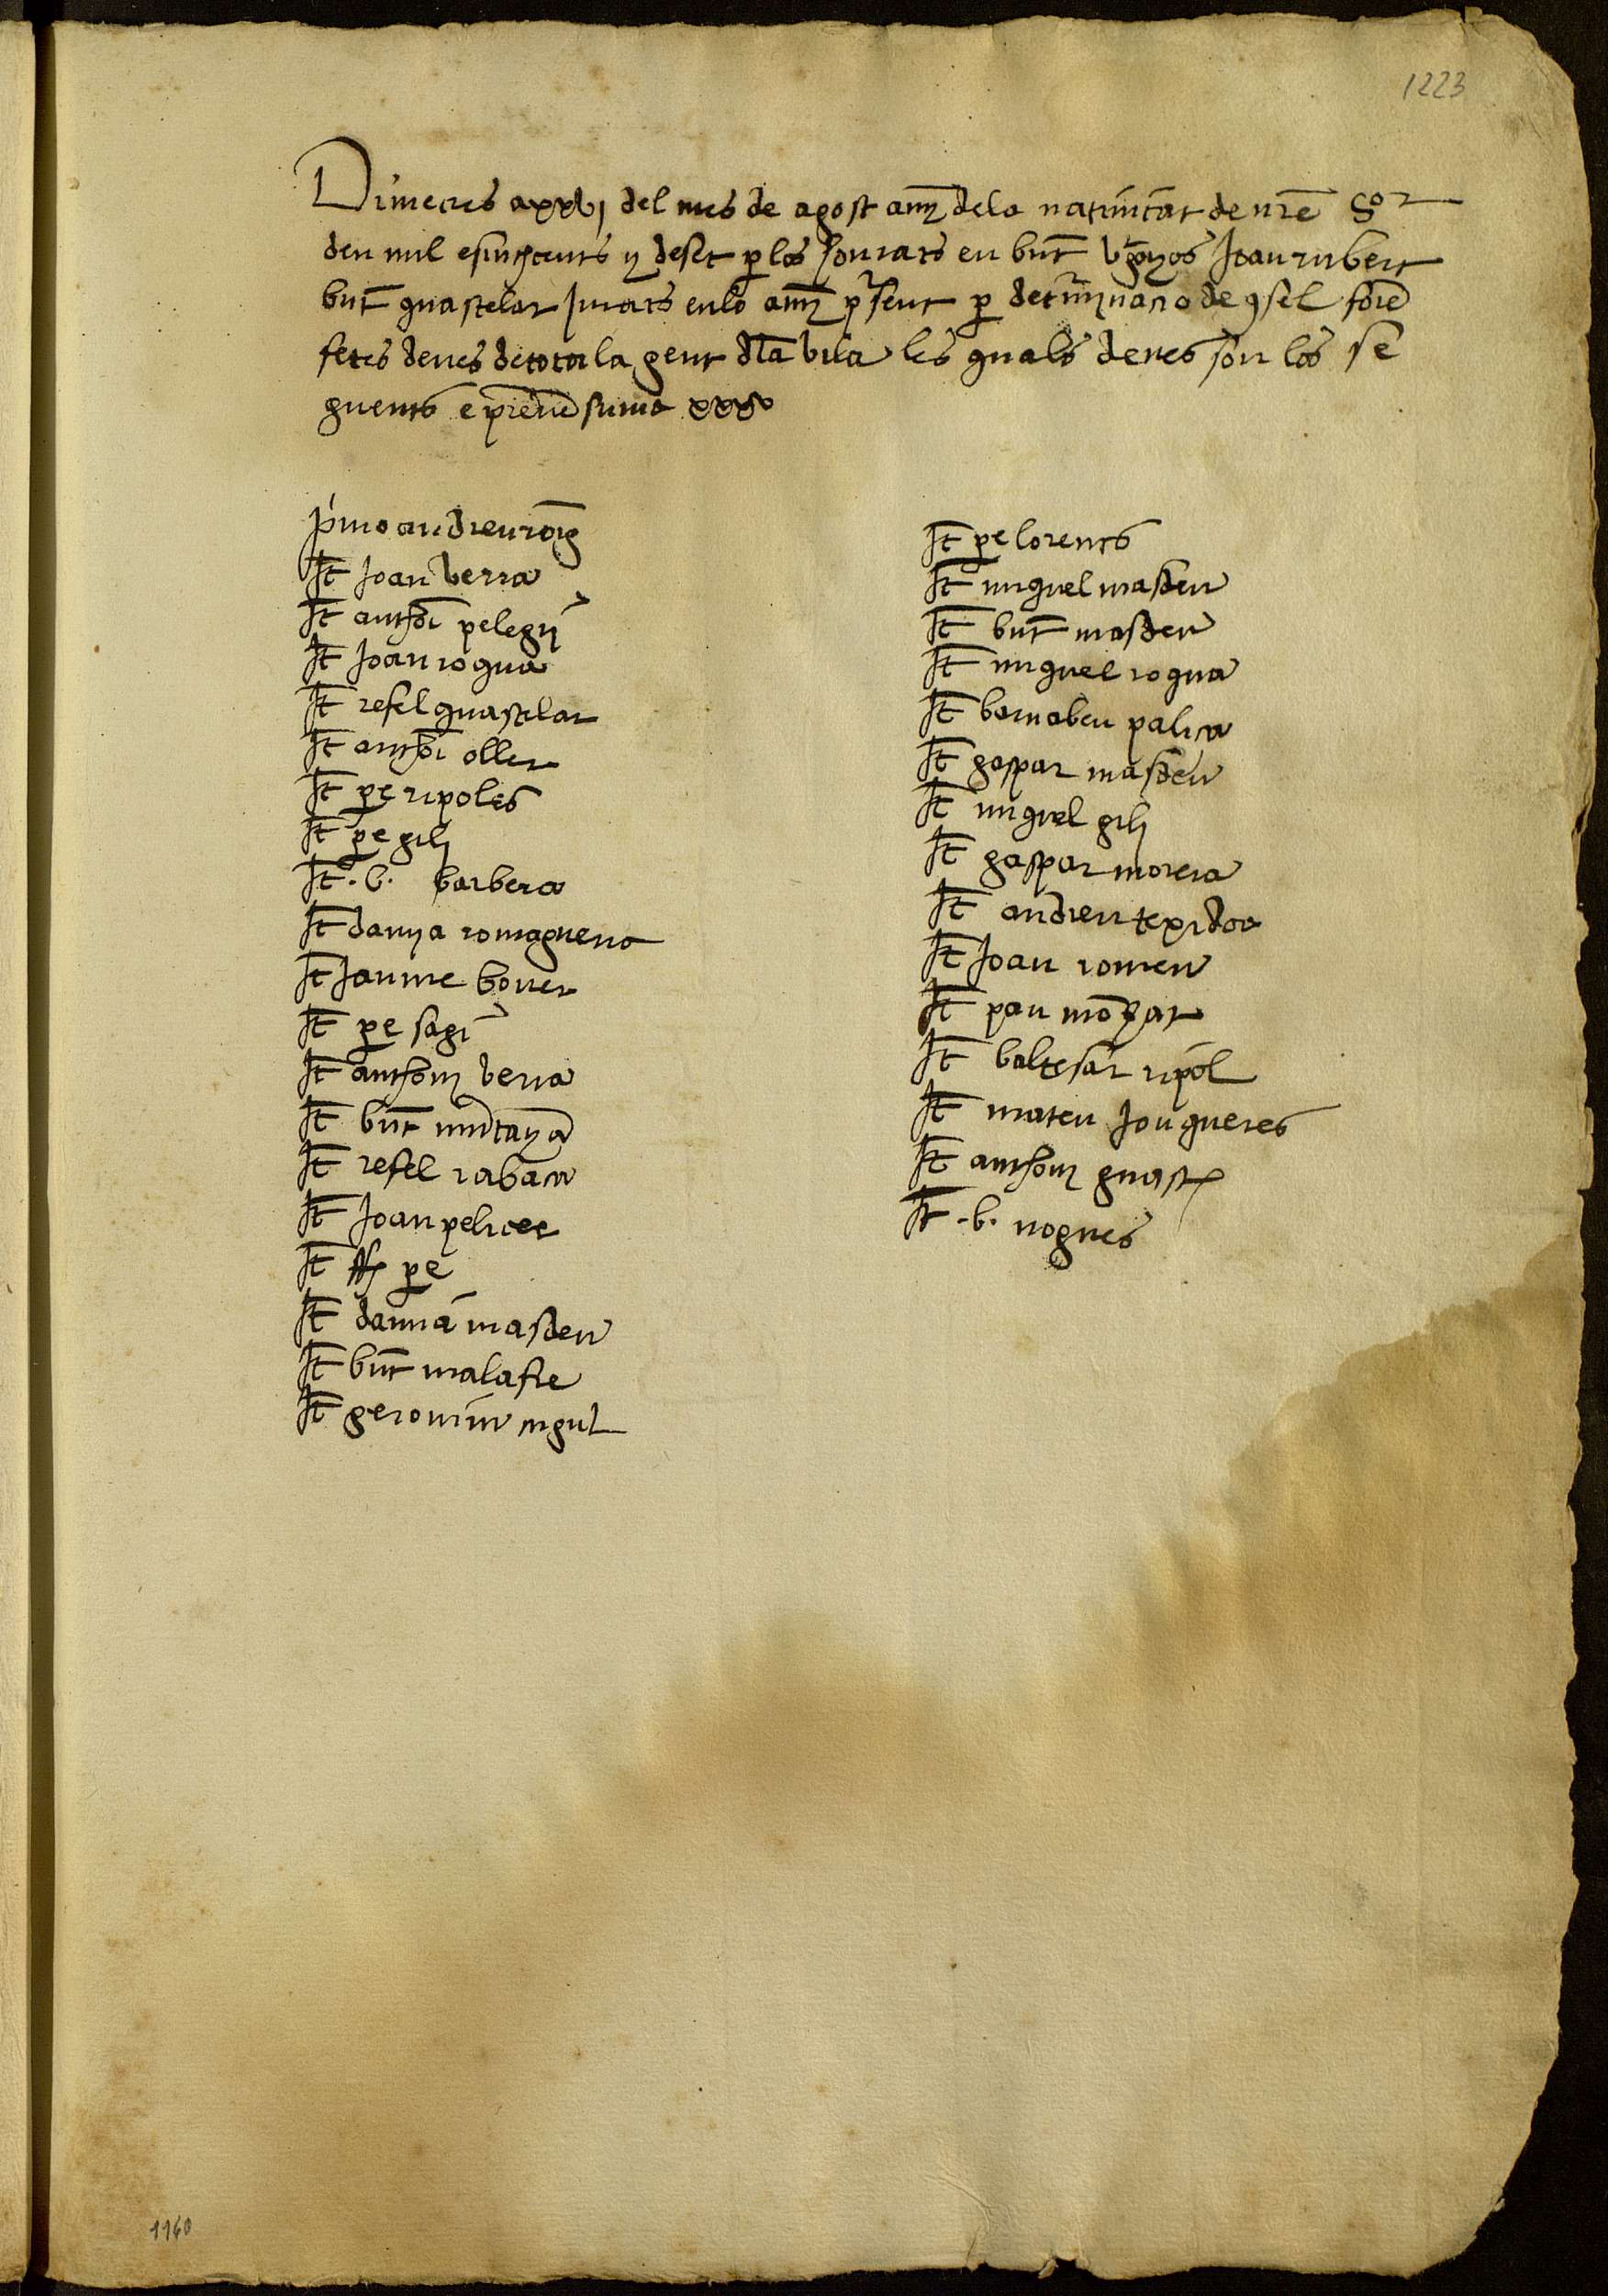 1223
Dimecres a xxvj del mes de agost any dela nativitat de nre Sor
deu mil e sinchcents y deset per los honrats en bnt Joan rubert
bnt guastelar Jurats en lo any present per determynacio de consel fore
fetes denes de tota la gent dla vila les quals denes son los se
guents e primerament
primo andreu roig
It Joan verra
It anthoni pelegri
It Joan rogua
It refel guastelar
It anthoni oller
It pe ripoles
It pe gili
It .b. barbera
It damya romaguera
It Jaume bover
It pe sagi
It anthony verra
It bnt muntanya
It refel rabaca
It Joan pelicer
It pe
It damia masdeu
It bnt malafre
It geronim
It pe lorents
It miguel masdeu
It bnt masdeu
It miguel rogua
It barnabeu palica
It gaspar masdeu
It miguel gili
It gaspar morera
It andreu texidor
It Joan romeu
It pau monzar
It baltesar ripol
It mateu Jongueres
It anthony guast
It .b. nogues
1160